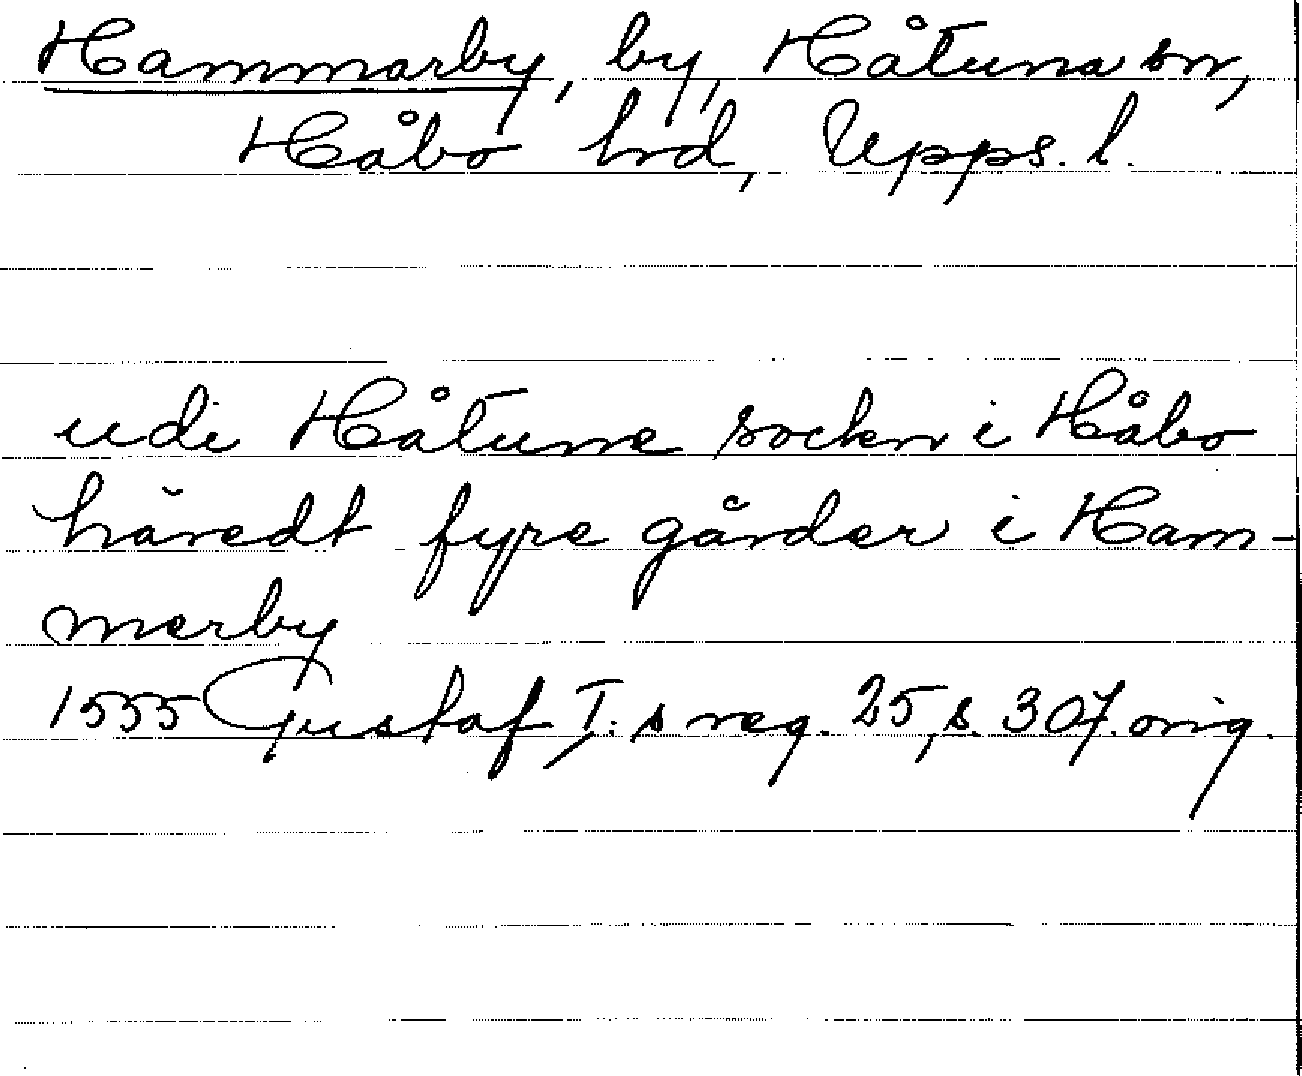 Hammarby, by, Håtuna sn,
Håbo hd, Upps. l.
udi Håtune sockn i Håbo
häredt fyre gårder i Ham-
merby
1555 Gustaf I:s reg. 25, s. 307. orig.